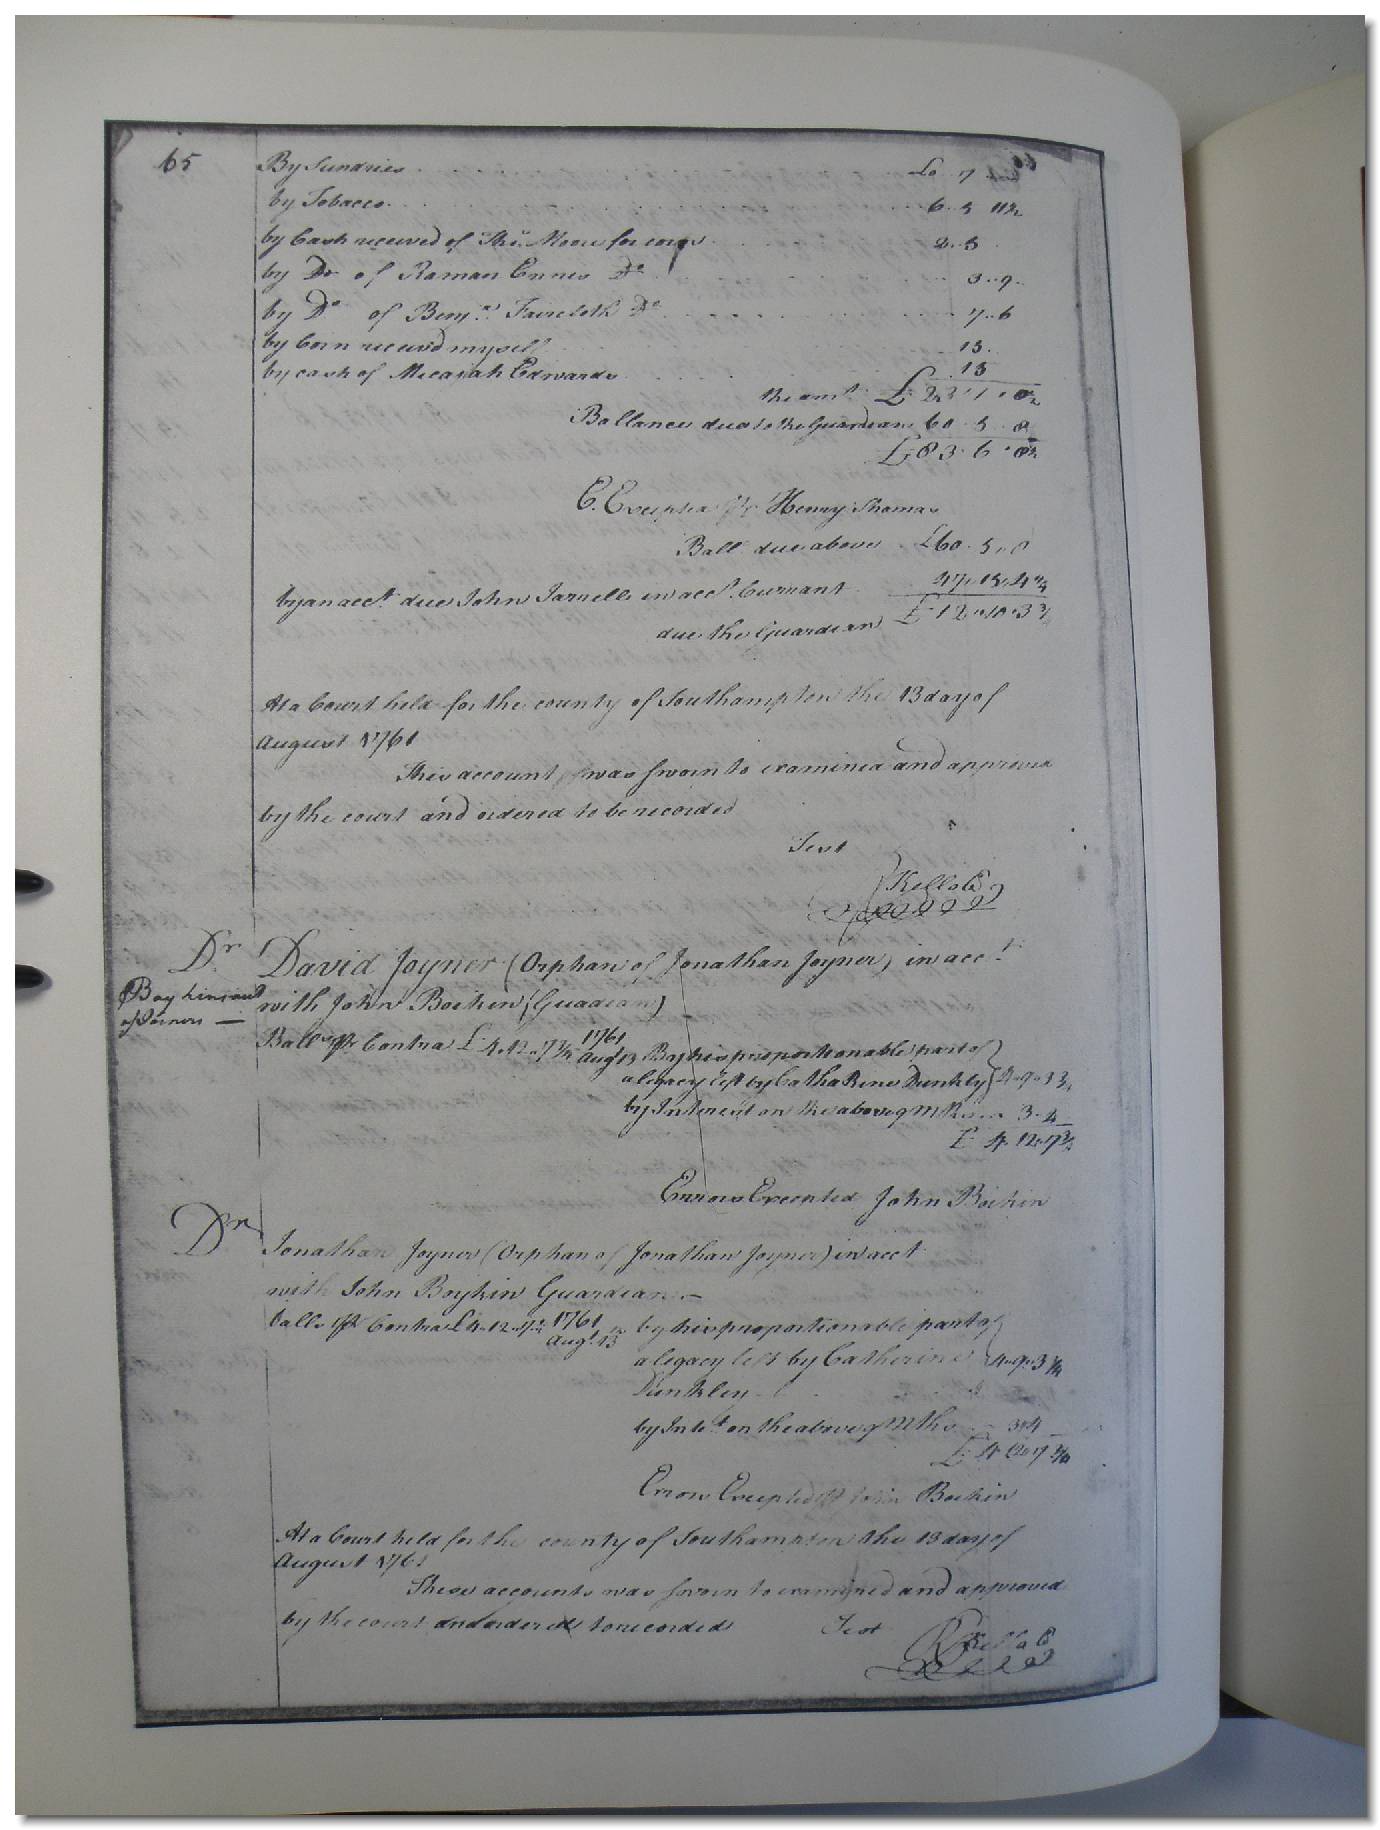 65
By Sundries £0 7
by Tobacco 6 5 11½
by Cash received of Thos. Moore for corn 2 5
by Do of Raman Ennes Do 3 9
by Do of Benjn. Faircloth Do 7 6
by Corn received myself 15
by cash of Micajah Edwards 15
the amt. £
Ballance due to the Guardian 60 5 8
£ 83 6 8½
E. Excepted Pr Henry Thomas
Ball due above £60 5 8
by an acct. due John Jarrells in acct. Currant 47 15 4¼
due the Guardian £ 12 10 3¾
At a Court held for the county of Southampton the 13 day of
August 1761
This account was sworn to examined and approved
by the court and ordered to be recorded
Test
Kello Cl
Dr David Joyner (Orphan of Jonathan Joyner) in acct.
Boykins
of Joiners with John Boikin (Guardian)
Ball Pr Contra £ 4 12 7¾ 1761 Augt 13 By his proportionable part of
a legacy left by Catha Rine Dunkley 4 9 3¾
by Interest on the above 9 m 3 4
£ 4 12 7¾
Errors Excepted John Boikin
Dr Jonathan Joyner (Orphan of Jonathan Joyner) in acct
with John Boykin Guardian
balle Pr Contra £4 12 7¾ 1761 Augt. 13 by his proportionable part of
a legacy left by Catherine 4 9 3¾
Dunkley
by Intt. on the above 9 Mths 3 4
£ 4 12 7¾
Errors Excepted Pr John Boikin
At a Court held for the county of Southampton the 13 day of
August 1761
These accounts was sworn to examined and approved
by the court and ordered to recorded Test
Kello Cl